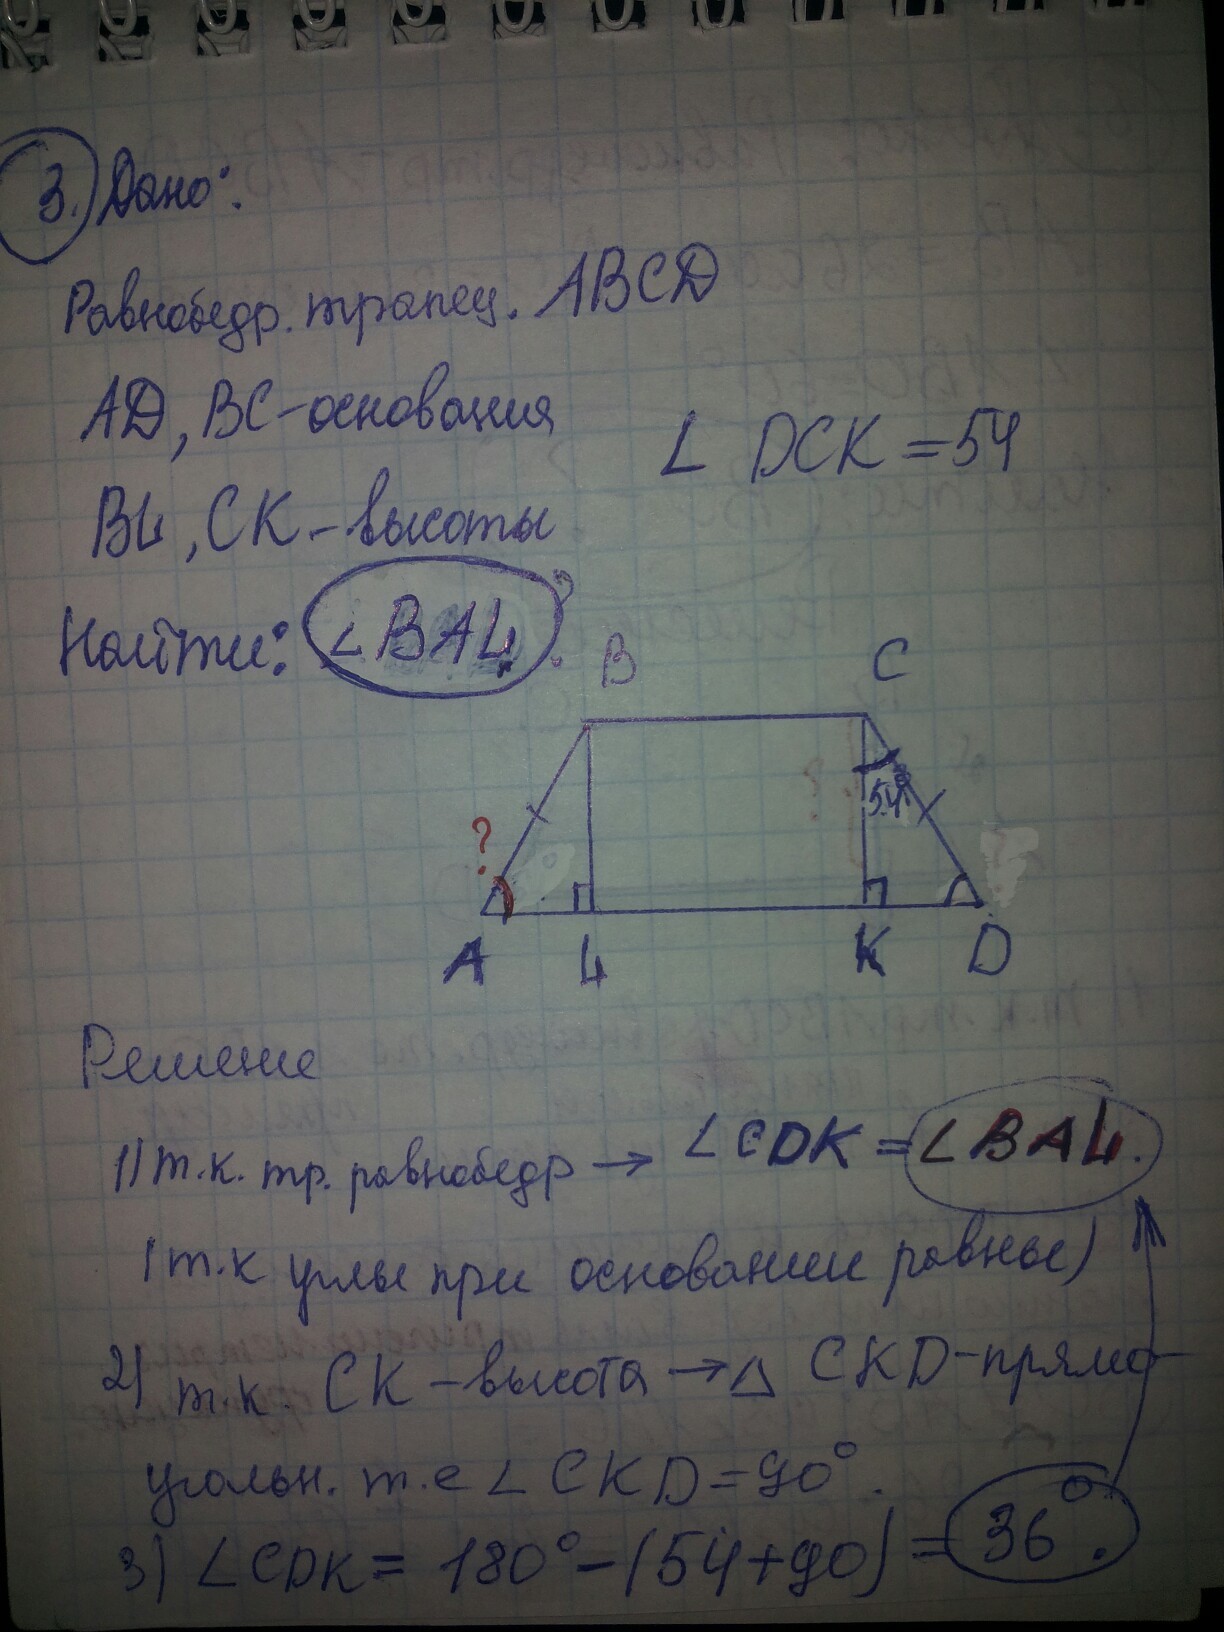 3. Дано:
Равнобедр. трапец. ABCD
AD, BC - основания
∠ DCK = 54
BL, CK - высоты
Найти: ∠BAL ?
B C
?
54°
A L K D
Решение
1) т.к. тр. равнобедр → ∠CDK = ∠BAL.
(т.к углы при основании равны)
2) т.к. CK - высота → △ CKD - прямо-
угольн. т.е ∠ CKD = 90°.
3) ∠CDK = 180° - (54 + 90) = 36°.